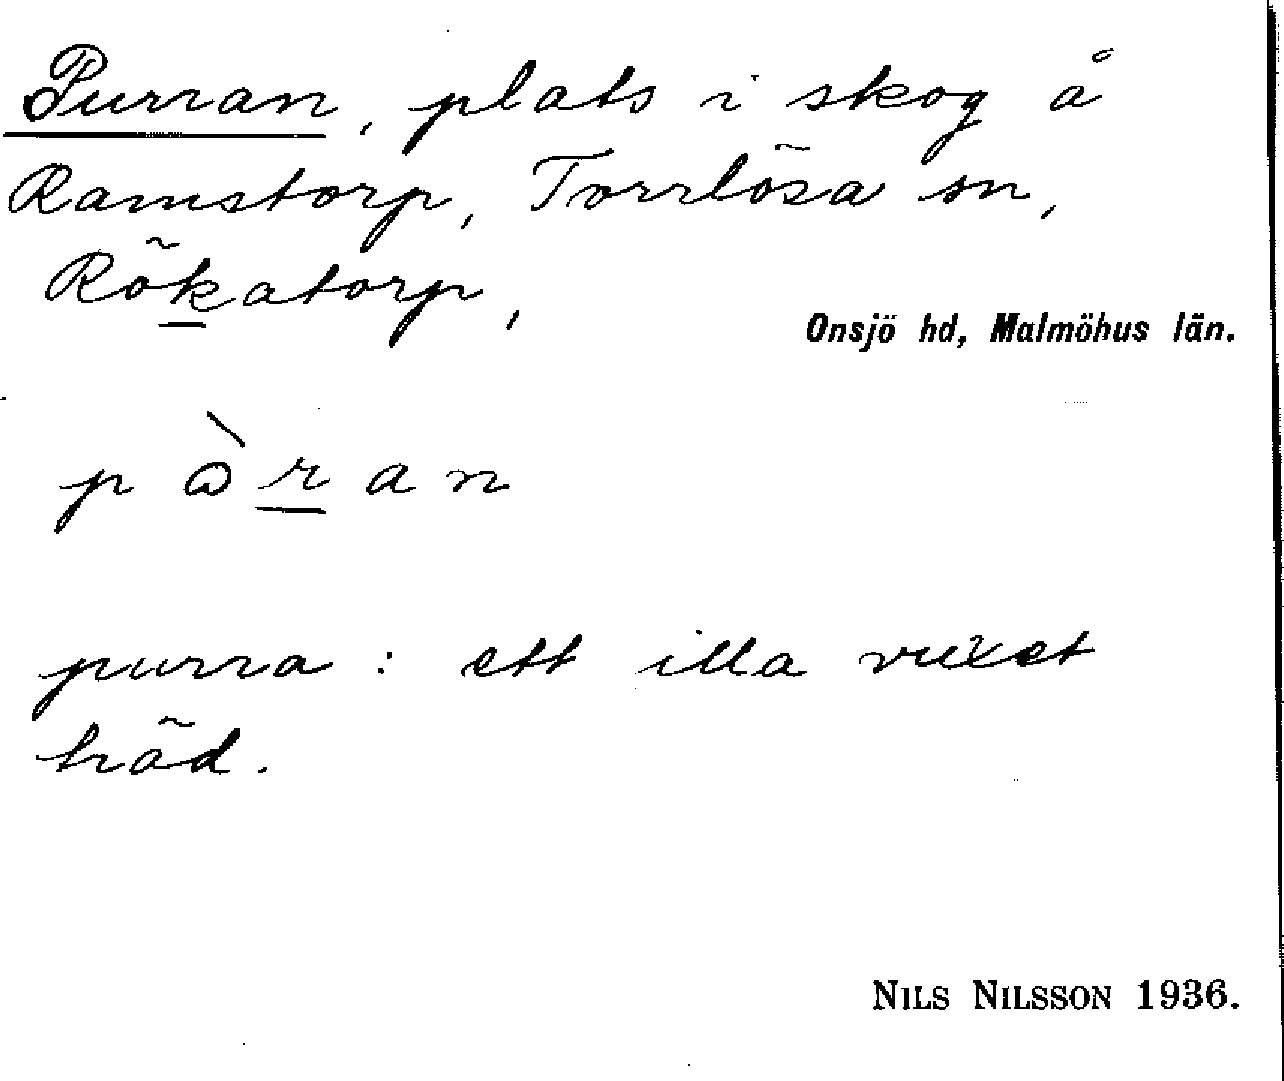 Purran, plats i skog å
Ramstorp, Torrlösa sn,
Rökatorp,
Onsjö hd, Malmöhus län.
pàran
purra: ett illa vuxet
träd.
NILS NILSSON 1936.